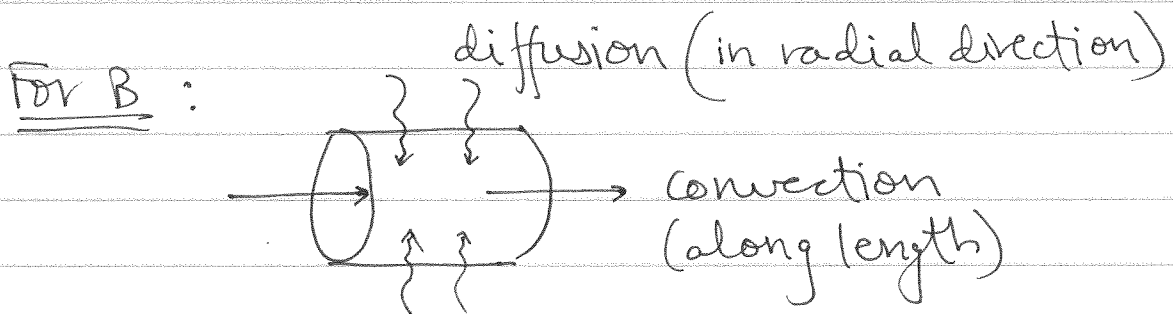 diffusion (in radial direction)
For B :
convection
(along length)